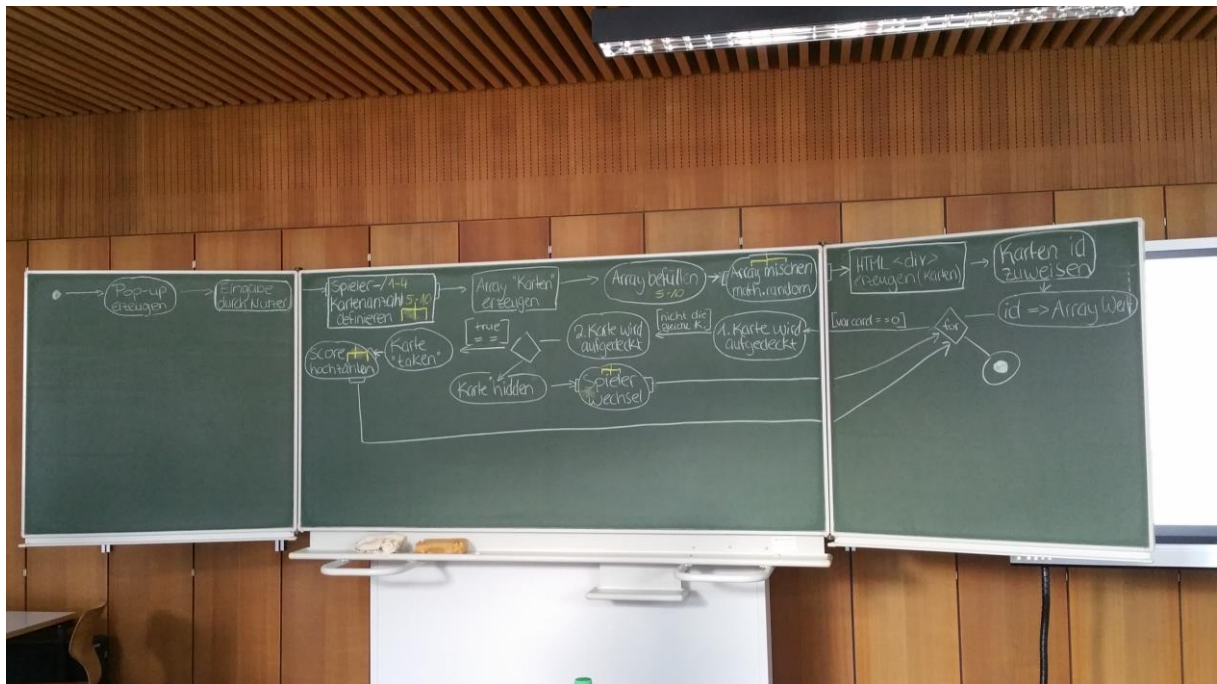 Pop-up
erzeugen
Eingabe
durch Nutzer
Spieler-/1-4
Kartenanzahl 5-10
definieren
Array "Karten"
erzeugen
Array befüllen
5-10
Array mischen
math.random
HTML <div>
erzeugen (Karten)
Karten id
zuweisen
id => Array Wert
for
[var card == 0]
1. Karte wird
aufgedeckt
[nicht die
gleiche K.]
2. Karte wird
aufgedeckt
[true
==]
Karte
"taken"
Score
hochzählen
Karte hidden
Spieler
Wechsel